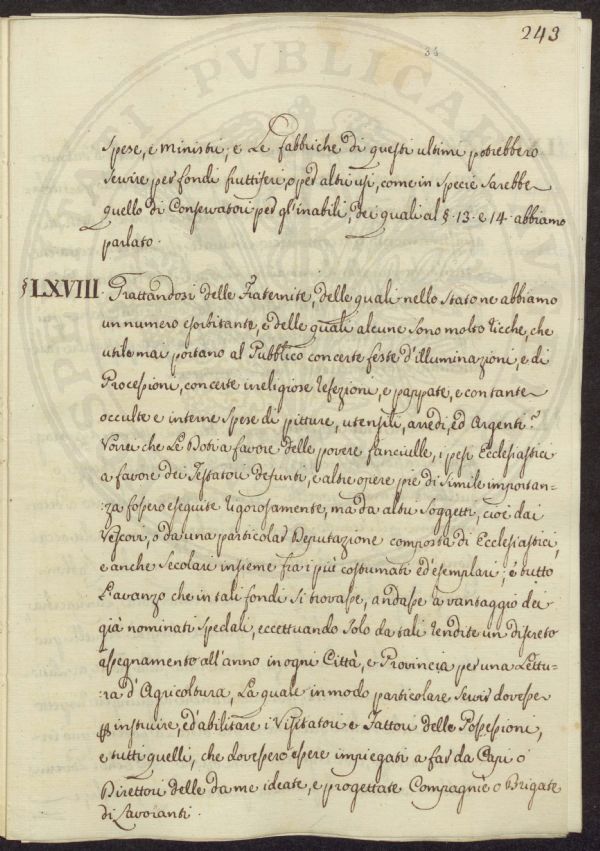 243
34
spese, e Ministri; e Le fabbriche di questi ultimi potrebbero
servire per fondi fruttiferi, o per altri usi, come in specie sarebbe
quello di Conservatori per gl'inabili, dei quali al §. 13. e 14. abbiamo
parlato.
§LXVIII. Trattandosi delle Fraternite, delle quali nello Stato ne abbiamo
un numero esorbitante, e delle quali alcune sono molto ricche, che
utile mai portano al Pubblico con certe feste d'illuminazioni, e di
Procesioni, con certe irreligiose refezioni, e pappate, e con tante
occulte e interne spese di pitture, utensili, arredi, ed Argenti?
Vorrei che Le Doti a favore delle povere fanciulle, i pesi Ecclesiastici
a favore dei Testatori defunti, e altre opere pie di simile importan-
:za fossero eseguite rigorosamente, ma da altri soggetti, cioè dai
Vescovi, o da una particolar Deputazione composta di Ecclesiastici,
e anche Secolari insieme fra i più costumati ed'esemplari; e tutto
L'avanzo che in tali fondi si trovasse, andasse a vantaggio dei
già nominati spedali, eccettuando solo da tali rendite un discreto
assegnamento all'anno in ogni Città, e Provincia per una Lettu-
:ra d'Agricoltura, La quale in modo particolare servir dovesse
instruire, ed'abilitare i Visitatori e Fattori delle Possessioni,
e tutti quelli, che dovessero essere impiegati a far da Capi o
Direttori delle da me ideate, e progettate Compagnie o Brigate
di Lavoranti.